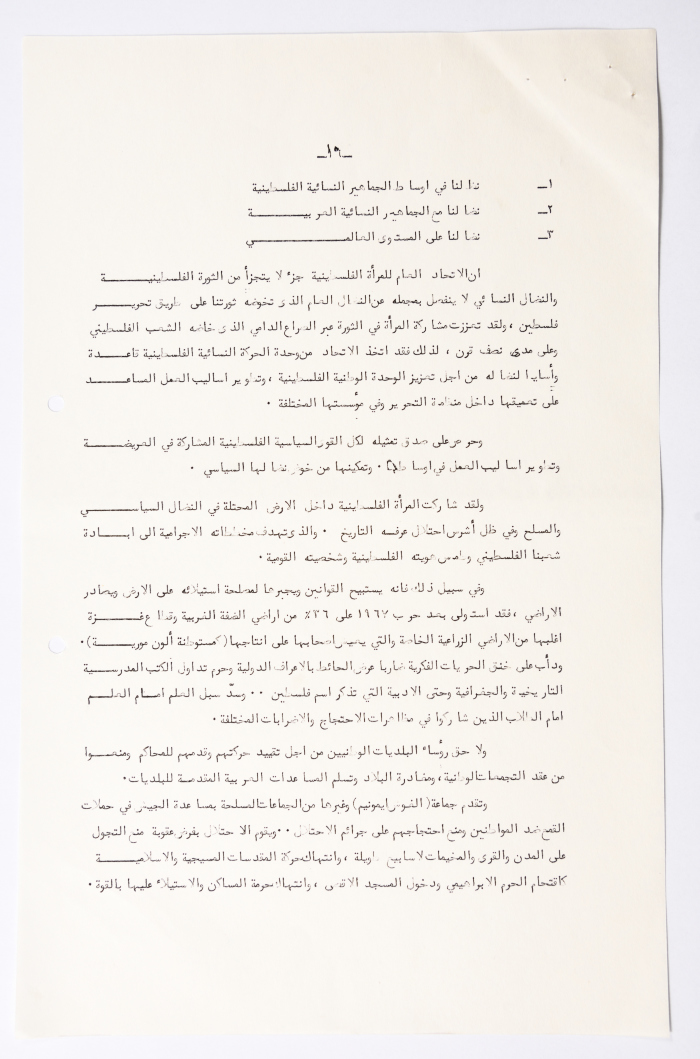 ـ١٩ـ
١ـ نضالنا في اوساط الجماهير النسائية الفلسطينية
٢ـ نضالنا مع الجماهير النسائية العربية
٣ـ نضالنا على المستوى العالمي
ان الاتحاد العام للمرأة الفلسطينية جزء لا يتجزأ من الثورة الفلسطينية
والنضال النسائي لا ينفصل بمجمله عن النضال العام الذى تخوضه ثورتنا على طريق تحرير
فلسطين ، ولقد تعززت مشاركة المرأة في الثورة عبر الصراع الدامي الذى خاضه الشعب الفلسطيني
وعلى مدى نصف قرن ، لذلك فقد اتخذ الاتحاد من وحدة الحركة النسائية الفلسطينية قاعدة
وأساسا لنضاله من اجل تعزيز الوحدة الوطنية الفلسطينية ، وتطوير اساليب العمل المساعد
على تعميقها داخل منظمة التحرير وفي مؤسستها المختلفة .
وحرص على صدق تمثيله لكل القوى السياسية الفلسطينية المشاركة في العريضة
وتطوير اساليب العمل في اوساطها . وتمكينها من خوض نضالها السياسي .
ولقد شاركت المرأة الفلسطينية داخل الارض المحتلة في النضال السياسي
والمسلح وفي ظل أشرس احتلال عرفه التاريخ . والذى تهدف مخططاته الاجرامية الى ابادة
شعبنا الفلسطيني وطمس هويته الفلسطينية وشخصيته القومية .
وفي سبيل ذلك فانه يستبيح القوانين ويجيرها لمصلحة استيلائه على الارض ويصادر
الاراضي ، فقد استولى بعد حرب ١٩٦٧ على ٣٦٪ من اراضي الضفة الغربية وقطاع غزة
اغلبها من الاراضي الزراعية الخاصة والتي يعيش اصحابها على انتاجها (كمستوطنة ألون مورية) .
ودأب على خنق الحريات الفكرية ضاربا عرض الحائط بالاعراف الدولية وحرم تداول الكتب المدرسية
التاريخية والجغرافية وحتى الادبية التي تذكر اسم فلسطين . . وسدّ سبل العلم أمام العلم
امام الطلاب الذين شاركوا في مظاهرات الاحتجاج والاضرابات المختلفة .
ولاحق رؤساء البلديات الوطنيين من اجل تقييد حركتهم وقدمهم للمحاكم ومنعوا
من عقد التجمعات الوطنية ، ومغادرة البلاد وتسلم المساعدات العربية المقدمة للبلديات .
وتقدم جماعة ( الغوش ايمونيم) وغيرها من الجماعات المسلحة بمساعدة الجيش في حملات
القمع ضد المواطنين ومنع احتجاجهم على جرائم الاحتلال . . ويقوم الاحتلال بفرض عقوبة منع التجول
على المدن والقرى والمخيمات لاسابيع طويلة ، وانتهاك حركة المقدسات المسيحية والاسلامية
كاقتحام الحرم الابراهيمي ودخول المسجد الاقصى ، وانتهاك حرمة المساكن والاستيلاء عليها بالقوة .